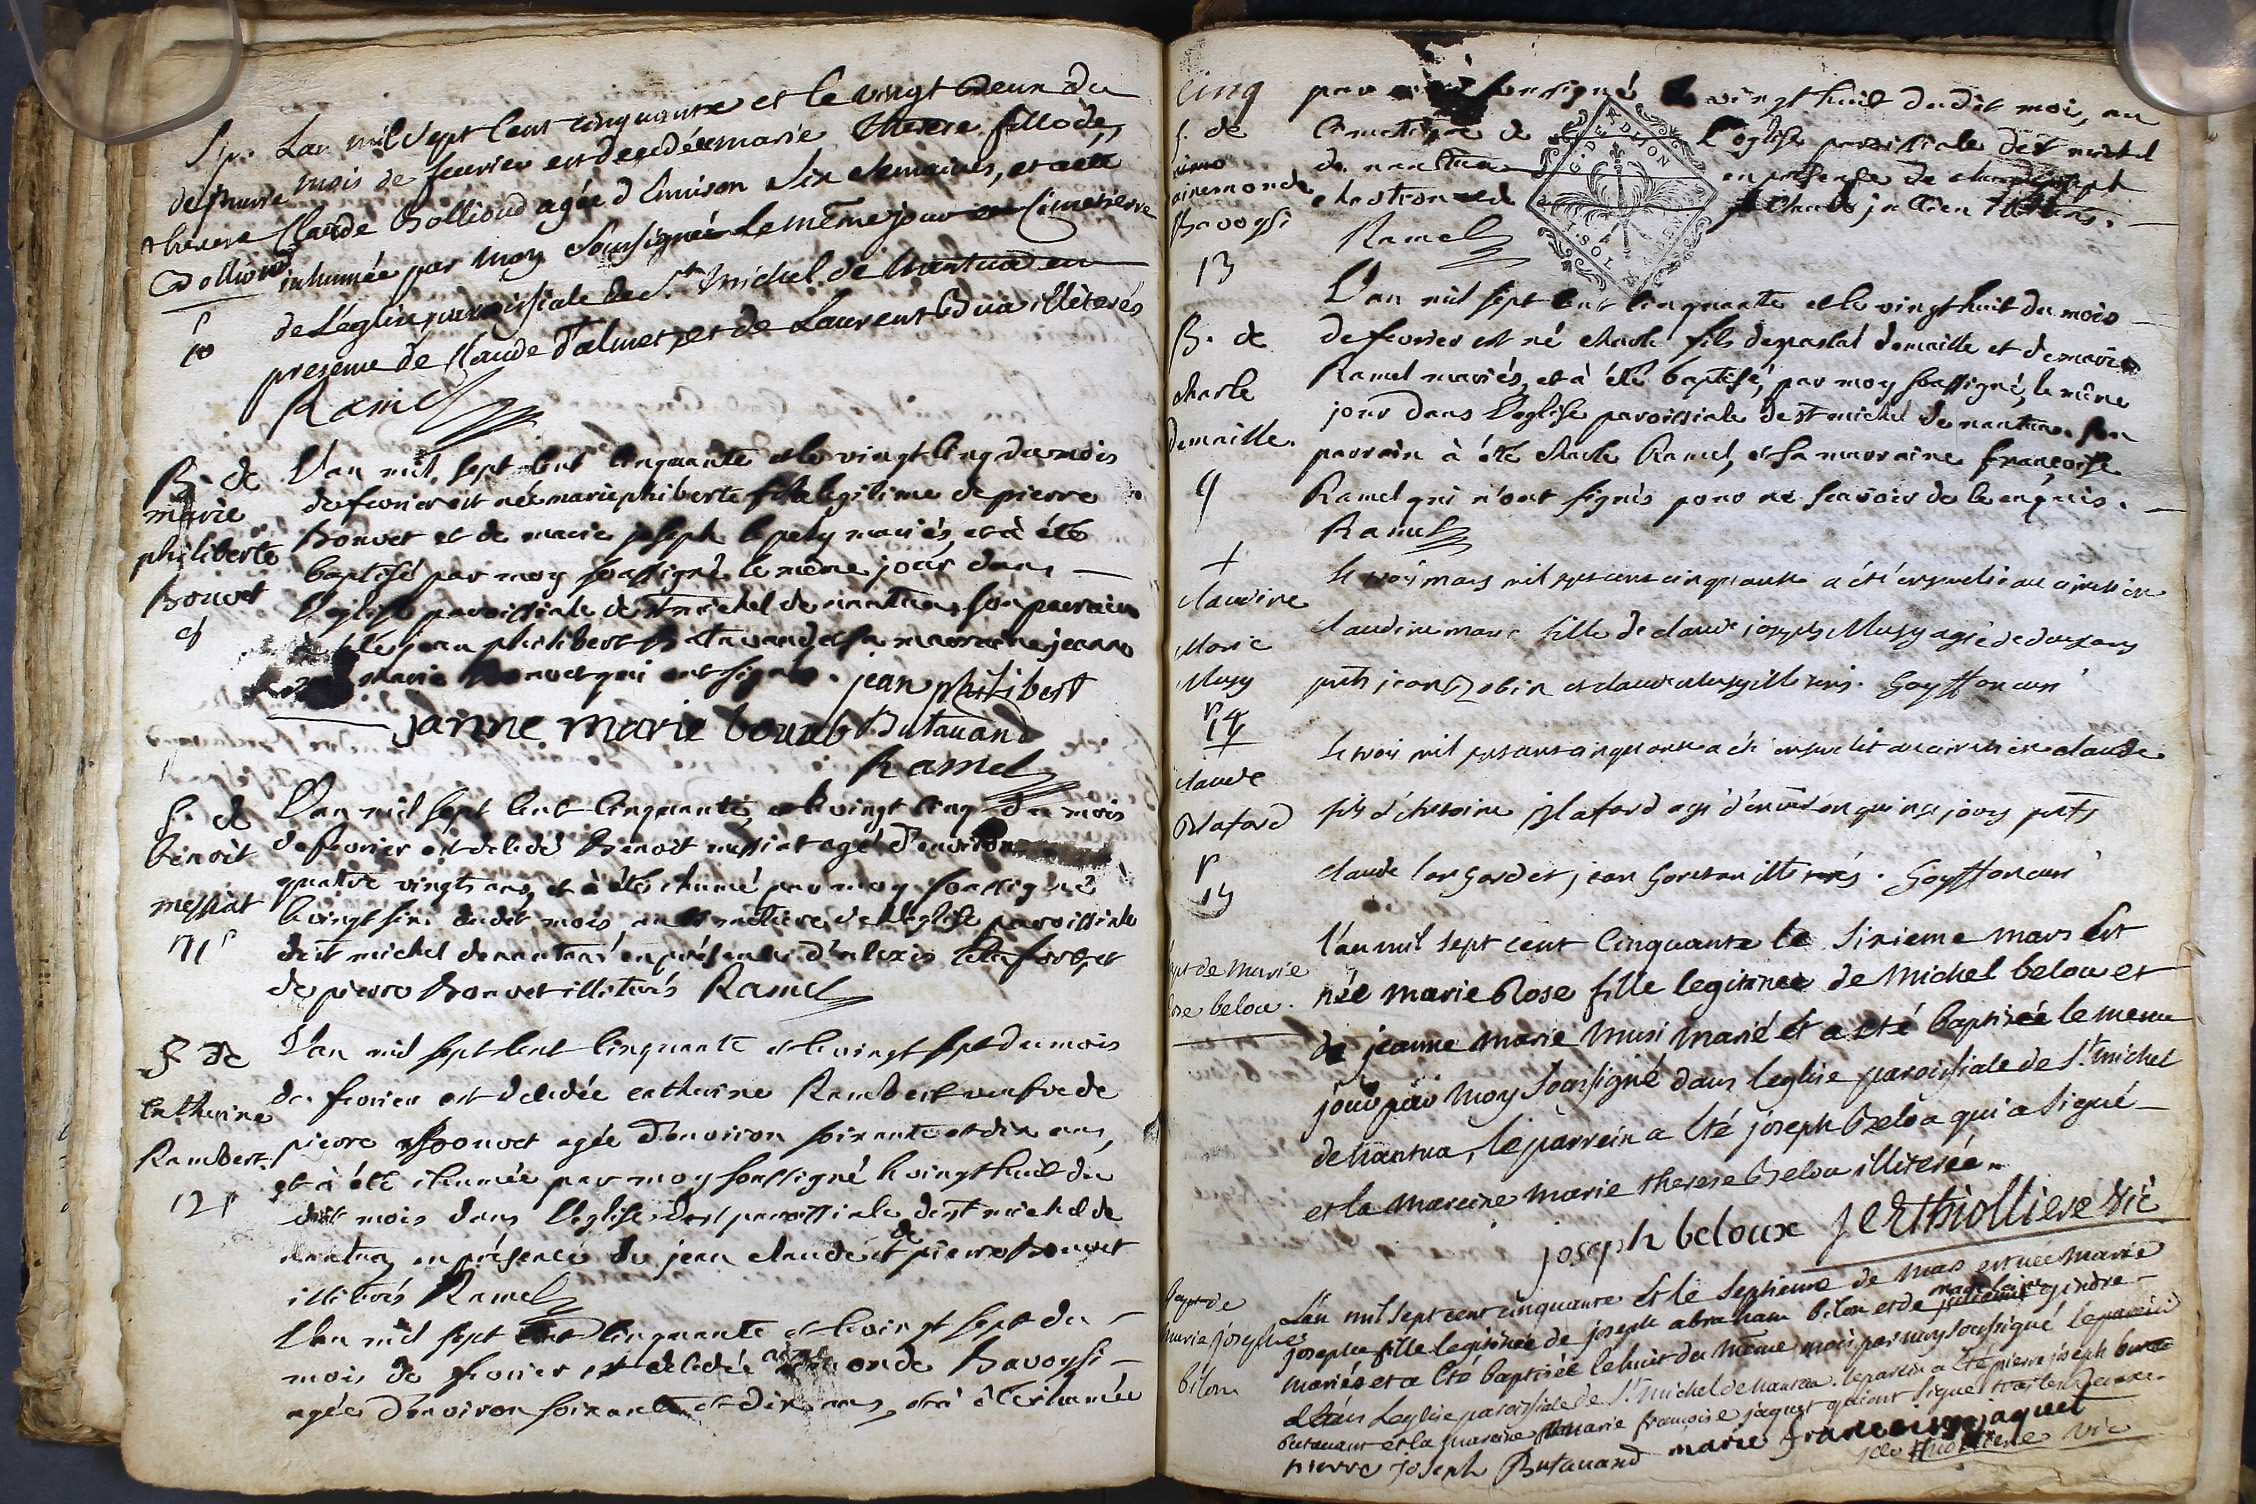 Sp.
de marie
therese
Dolliond
10
Lan mil sept Cent cinquante et le vingt deux du
mois de fevrier est decedée marie therese fille de
Claude Dolliond agée d'environ six semaines, et a été
inhumée par moy soussigné le même jour au Cimetierre
de L'eglise paroissiale de St. michel de Nantua en
presence de Claude Talmet, et de Laurent illiterés
Ramel
B. de
marie
philiberte
Bouvet
L'an mil sept cent cinquante et le vingt cinq du mois
de fevrier est née marie philiberte fille legitime de pierre
Bonvet et de marie joseph mariés, et à été
baptisé par moy soussigné le même jour dans
L'eglise paroissiale de st michel de nantua, son parrain
à été jean philibert Butavand et sa marraine jeanne
marie Bonvet qui ont signés. jean philibert
janne marie bouvet Butavand
Ramel
S. de
benoit
messiat
11
L'an mil sept cent cinquante, et le vingt cinq du mois
de fevrier est decedé Benoit messiat agé d'environ
quatre vingts ans, et à été inhumé par moy soussigné
le vingt six dudit mois, au cimetiere de L'eglise paroissiale
de st michel de nantua en présence d'alexis et
de pierre Bonvet illiterés Ramel
S. de
Catherine
Rambert
12
L'an mil sept cent cinquante et le vingt sept du mois
de fevrier est decedée catherine Rambert veufve de
pierre Bonvet agée d'environ soixante et dix ans,
et à été inhumée par moy soussigné le vingt huit du
dit mois dans L'eglise paroissiale de st michel de
nantua, en présence de jean claude et de pierre Bonvet
illiterés Ramel
L'an mil sept cent cinquante et le vingt sept du
mois de fevrier est decedée aimonde Bavoysi
agée d'environ soixante et dix ans, et à été inhumée
cinq
S. de
Bavoysi
13
par moi soussigné le vingt huit dudit mois, au
cimetiere de L'eglise paroissiale de st michel
de nantua en présence de claude
et de Charle jullien illiterés.
G. DE RDIJON
1. SOL
Ramel
B. de
charle
demaille.
9
L'an mil sept cent cinquante et le vingt huit du mois
de fevrier est né charle fils de pascal demaille et de marie
Ramel mariés, et à été baptisé, par moy soussigné, le même
jour dans L'eglise paroissiale de st michel de nantua. son
parrain à été charle Ramel, et sa marraine françoise
Ramel qui n'ont signés pour ne sçavoir de ce enquis.
Ramel
+
claudine
Marie
Musy
14
Le trois mars mil sept cent cinquante a été ensevelie au cimetiere
claudine marie fille de claude joseph Musy agée de deux ans
prts jean Robin et claude Musy illiterés. Goyffon curé
claude
Blafard
15
Le trois mil sept cent cinquante a été enseveli au cimetiere claude
fils d'Antoine Blafard agé d'environ quinze jours prts
claude et jean illiterés. Goyffon curé
bapt de marie
rose belou.
l'an mil sept cent Cinquante le sixieme mars est
née marie Rose fille legitimée de michel belou et
de jeanne marie musi marié et a été baptisée le meme
jour par moy soussigné dans leglise paroissiale de St. michel
de nantua, le parrein a été joseph Beloa qui a signé
et la mareine marie therese Belou illiterée.
joseph beloux Jerthiolliere vic
Bapt de
marie josephe
bilon
L'an mil sept cent cinquante et le septieme de mars est née marie
josephe fille legitimée de joseph abraham bilon et de madelaine gindre
mariés et a été baptisée le huit du même mois par moy soussigné
dans L'eglise paroissiale de St. michel de nantua. le parein a été pierre joseph
butavant et la mareine marie françoise jaquet qui ont signé
pierre joseph Butavand marie françoise jaquet
Jerthiolliere vic